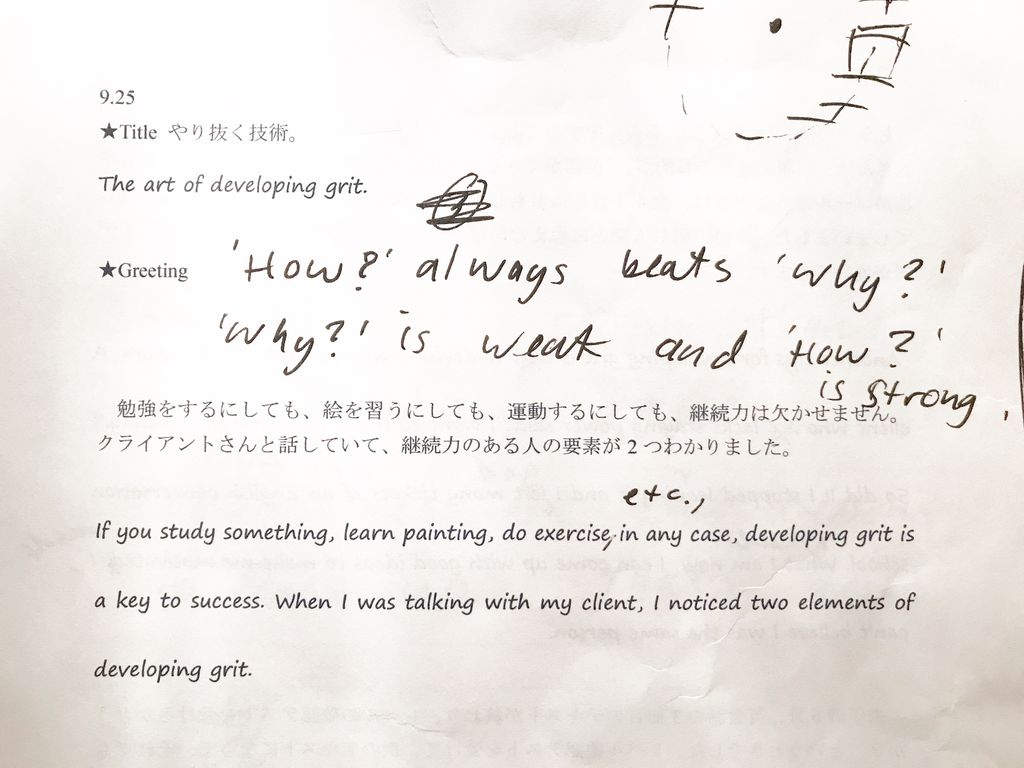 9.25
★Title やり抜く技術。
The art of developing grit.
★Greeting 'How?' always beats 'why?'
'why?' is weak and 'How?'
is strong.
勉強をするにしても、絵を習うにしても、運動するにしても、継続力は欠かせません。
クライアントさんと話していて、継続力のある人の要素が2つわかりました。
etc.,
If you study something, learn painting, do exercise, in any case, developing grit is
a key to success. When I was talking with my client, I noticed two elements of
developing grit.